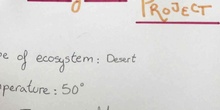 PROJECT
pe of ecosystem: Desert
perature: 50°